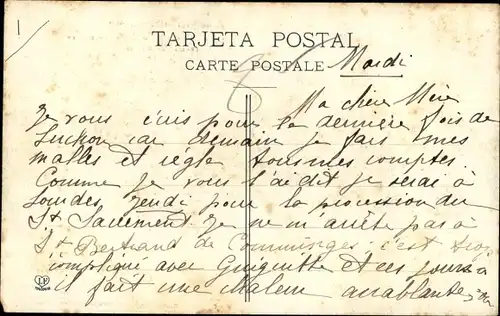 TARJETA POSTAL
CARTE POSTALE
Mardi
Ma chère Mère
Je vous écris pour la dernière fois de
Luchon car demain je fais mes
malles et regle tous mes comptes.
Comme je vous l'ai dit je serai à
Lourdes jeudi pour la procession du
St Sacrement je ne m'arrête pas à
St Bertrand de Comminges c'est trop
compliqué avec Guiguitte et ces jours
il fait une chaleur accablante